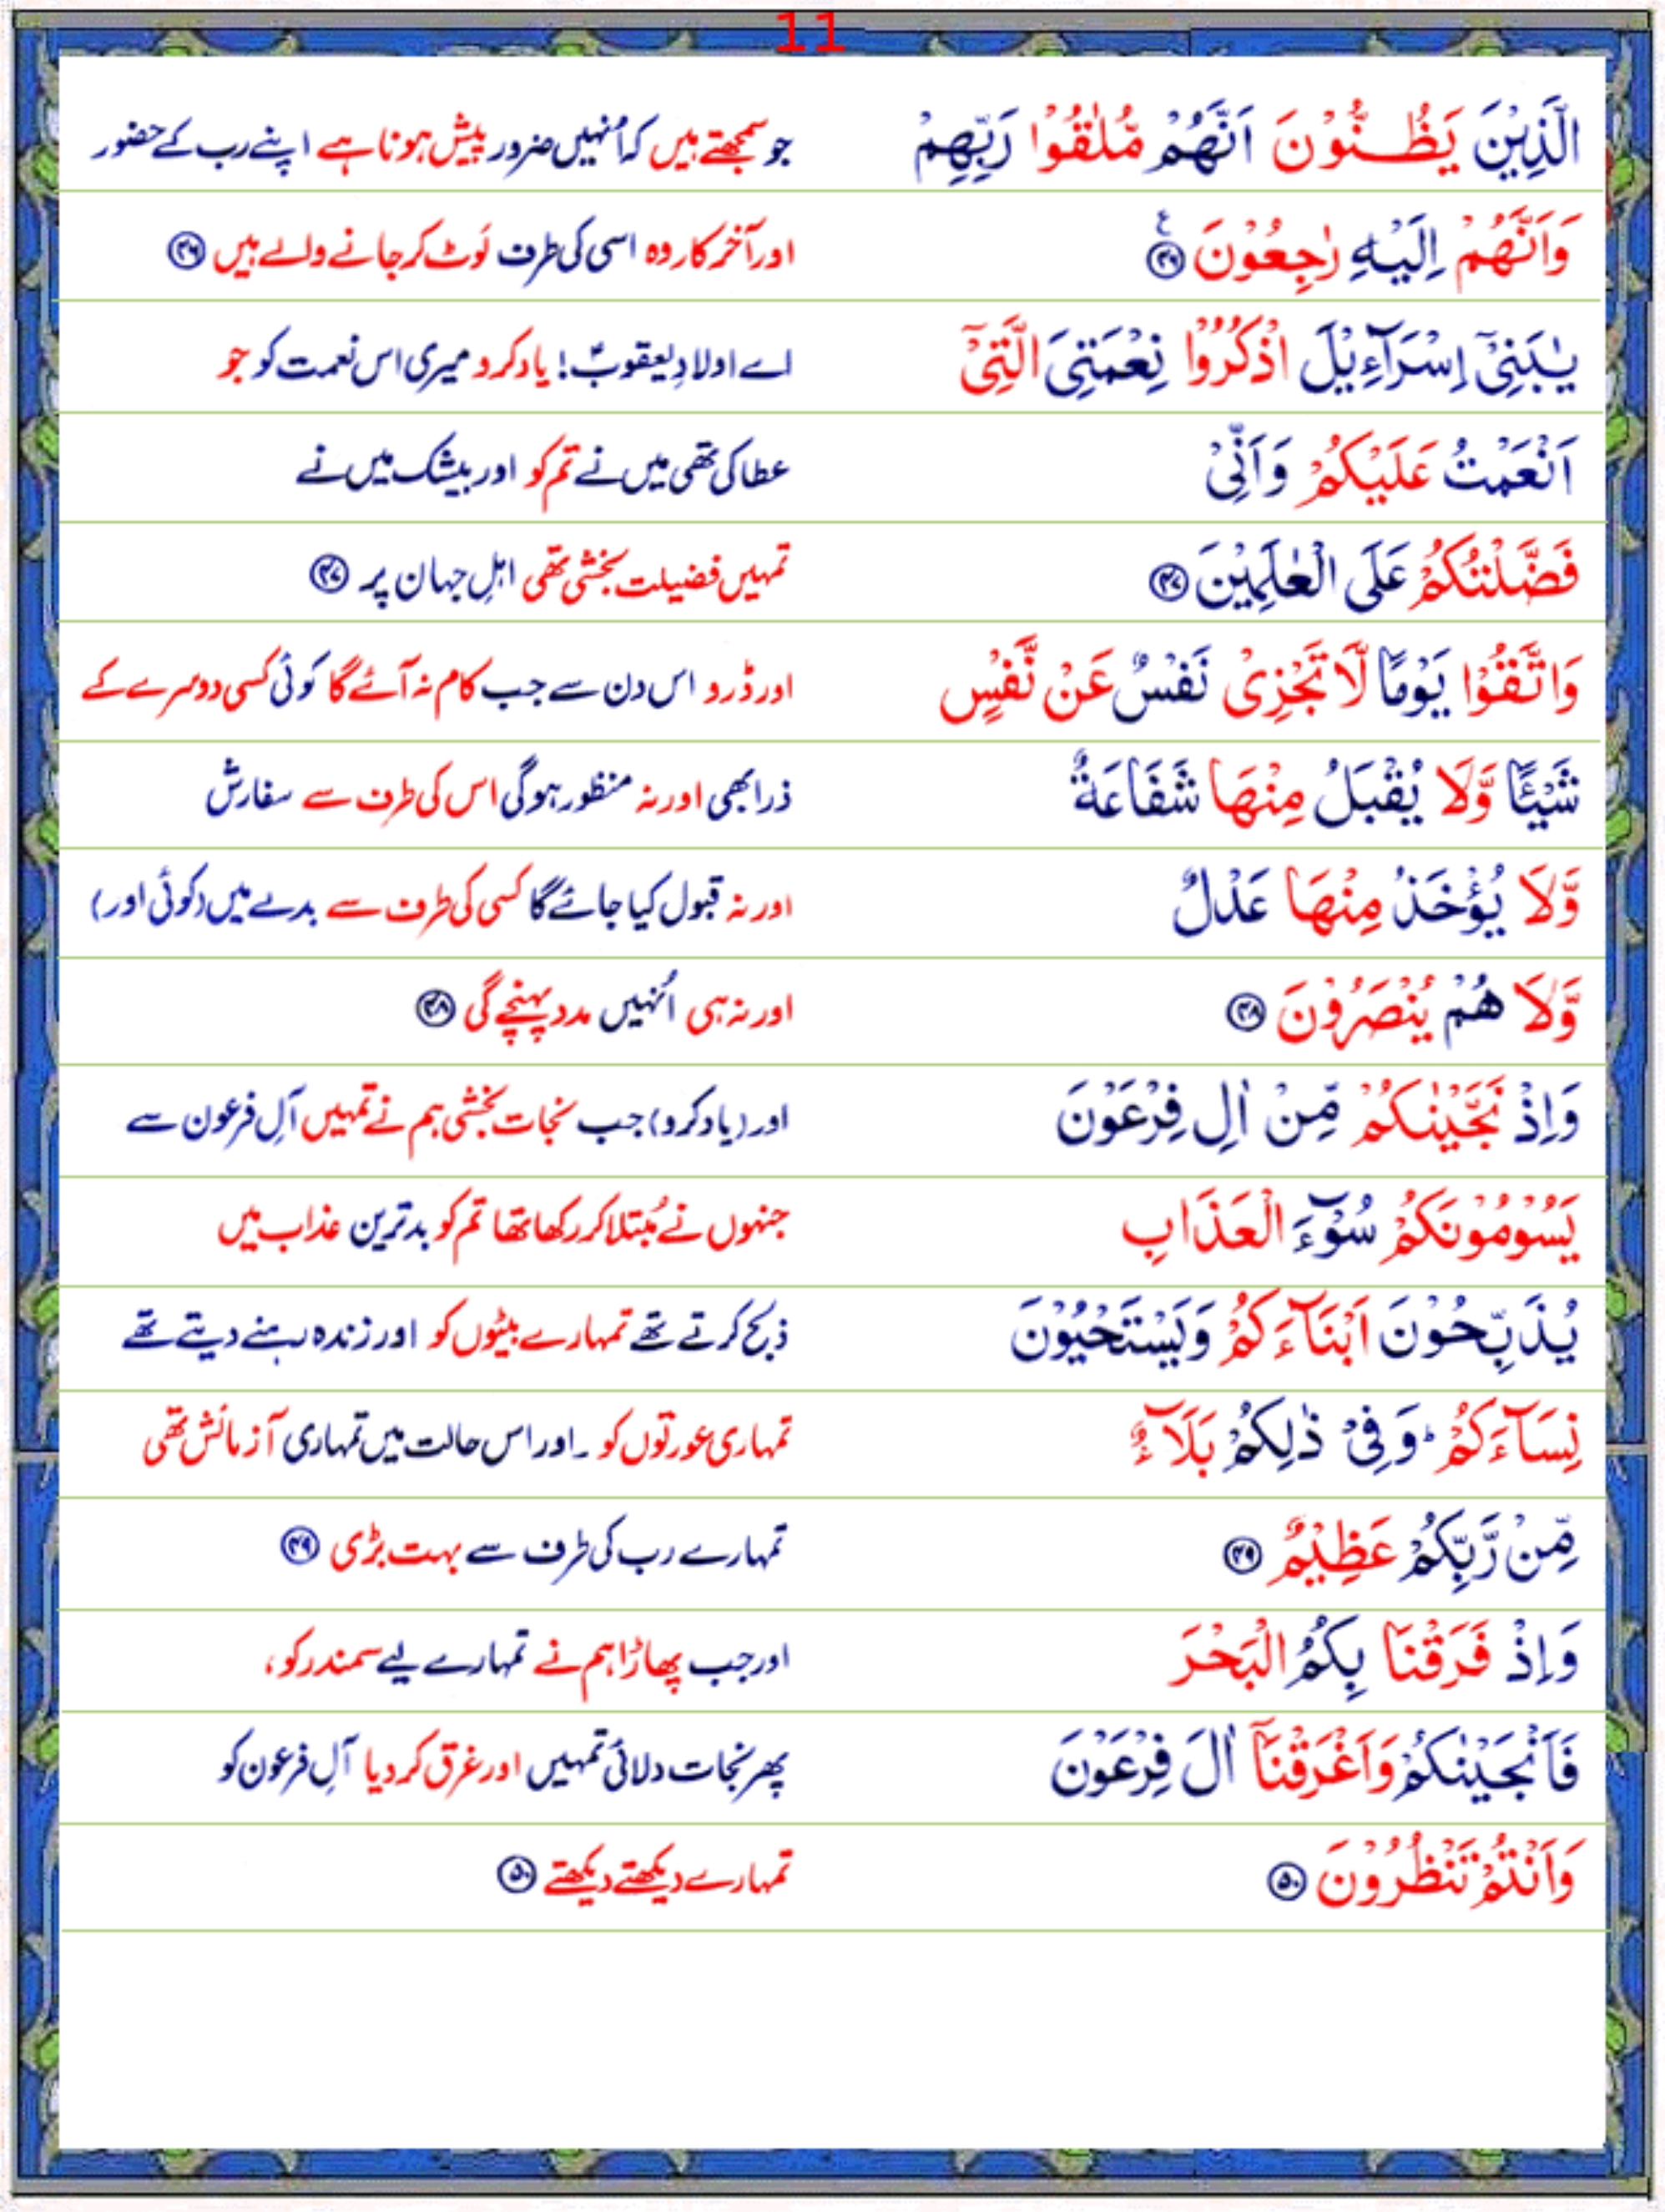 11
الَّذِيْنَ يَظُـنُّوْنَ اَنَّهُمْ مُّلٰقُوْا رَبِّهِمْ جو سمجھتے ہیں کہ اُنہیں ضرور پیش ہونا ہے اپنے رب کے حضور
وَاَنَّهُمْ اِلَيْهِ رٰجِعُوْنَ ۴۶ ع اور آخر کار وہ اسی کی طرف لَوٹ کر جانے والے ہیں ۴۶
يٰبَنِىْٓ اِسْرَآءِيْلَ اذْكُرُوْا نِعْمَتِىَ الَّتِىْٓ اے اولادِ یعقوبؑ! یاد کرو میری اس نعمت کو جو
اَنْعَمْتُ عَلَيْكُمْ وَاَنِّىْ عطا کی تھی میں نے تم کو اور بیشک میں نے
فَضَّلْتُكُمْ عَلَى الْعٰلَمِيْنَ ۴۷ تمہیں فضیلت بخشی تھی اہلِ جہان پر ۴۷
وَاتَّقُوْا يَوْمًا لَّا تَجْزِىْ نَفْسٌ عَنْ نَّفْسٍ اور ڈرو اس دن سے جب کام نہ آئے گا کوئی کسی دوسرے کے
شَيْـًٔا وَّلَا يُقْبَلُ مِنْهَا شَفَاعَةٌ ذرا بھی اور نہ منظور ہوگی اس کی طرف سے سفارش
وَّلَا يُؤْخَذُ مِنْهَا عَدْلٌ اور نہ قبول کیا جائے گا کسی کی طرف سے بدلے میں (کوئی اور)
وَّلَا هُمْ يُنْصَرُوْنَ ۴۸ اور نہ ہی اُنہیں مدد پہنچے گی ۴۸
وَاِذْ نَجَّيْنٰكُمْ مِّنْ اٰلِ فِرْعَوْنَ اور (یاد کرو) جب نجات بخشی ہم نے تمہیں آلِ فرعون سے
يَسُوْمُوْنَكُمْ سُوْٓءَ الْعَذَابِ جنہوں نے مُبتلا کر رکھا تھا تم کو بدترین عذاب میں
يُذَبِّحُوْنَ اَبْنَآءَكُمْ وَيَسْتَحْيُوْنَ ذبح کرتے تھے تمہارے بیٹوں کو اور زندہ رہنے دیتے تھے
نِسَآءَكُمْ ؕ وَفِىْ ذٰلِكُمْ بَلَآءٌ تمہاری عورتوں کو ۔ اور اس حالت میں تمہاری آزمائش تھی
مِّنْ رَّبِّكُمْ عَظِيْمٌ ۴۹ تمہارے رب کی طرف سے بہت بڑی ۴۹
وَاِذْ فَرَقْنَا بِكُمُ الْبَحْرَ اور جب پھاڑا ہم نے تمہارے لیے سمندر کو،
فَاَنْجَيْنٰكُمْ وَاَغْرَقْنَآ اٰلَ فِرْعَوْنَ پھر نجات دلائی تمہیں اور غرق کر دیا آلِ فرعون کو
وَاَنْتُمْ تَنْظُرُوْنَ ۵۰ تمہارے دیکھتے دیکھتے ۵۰